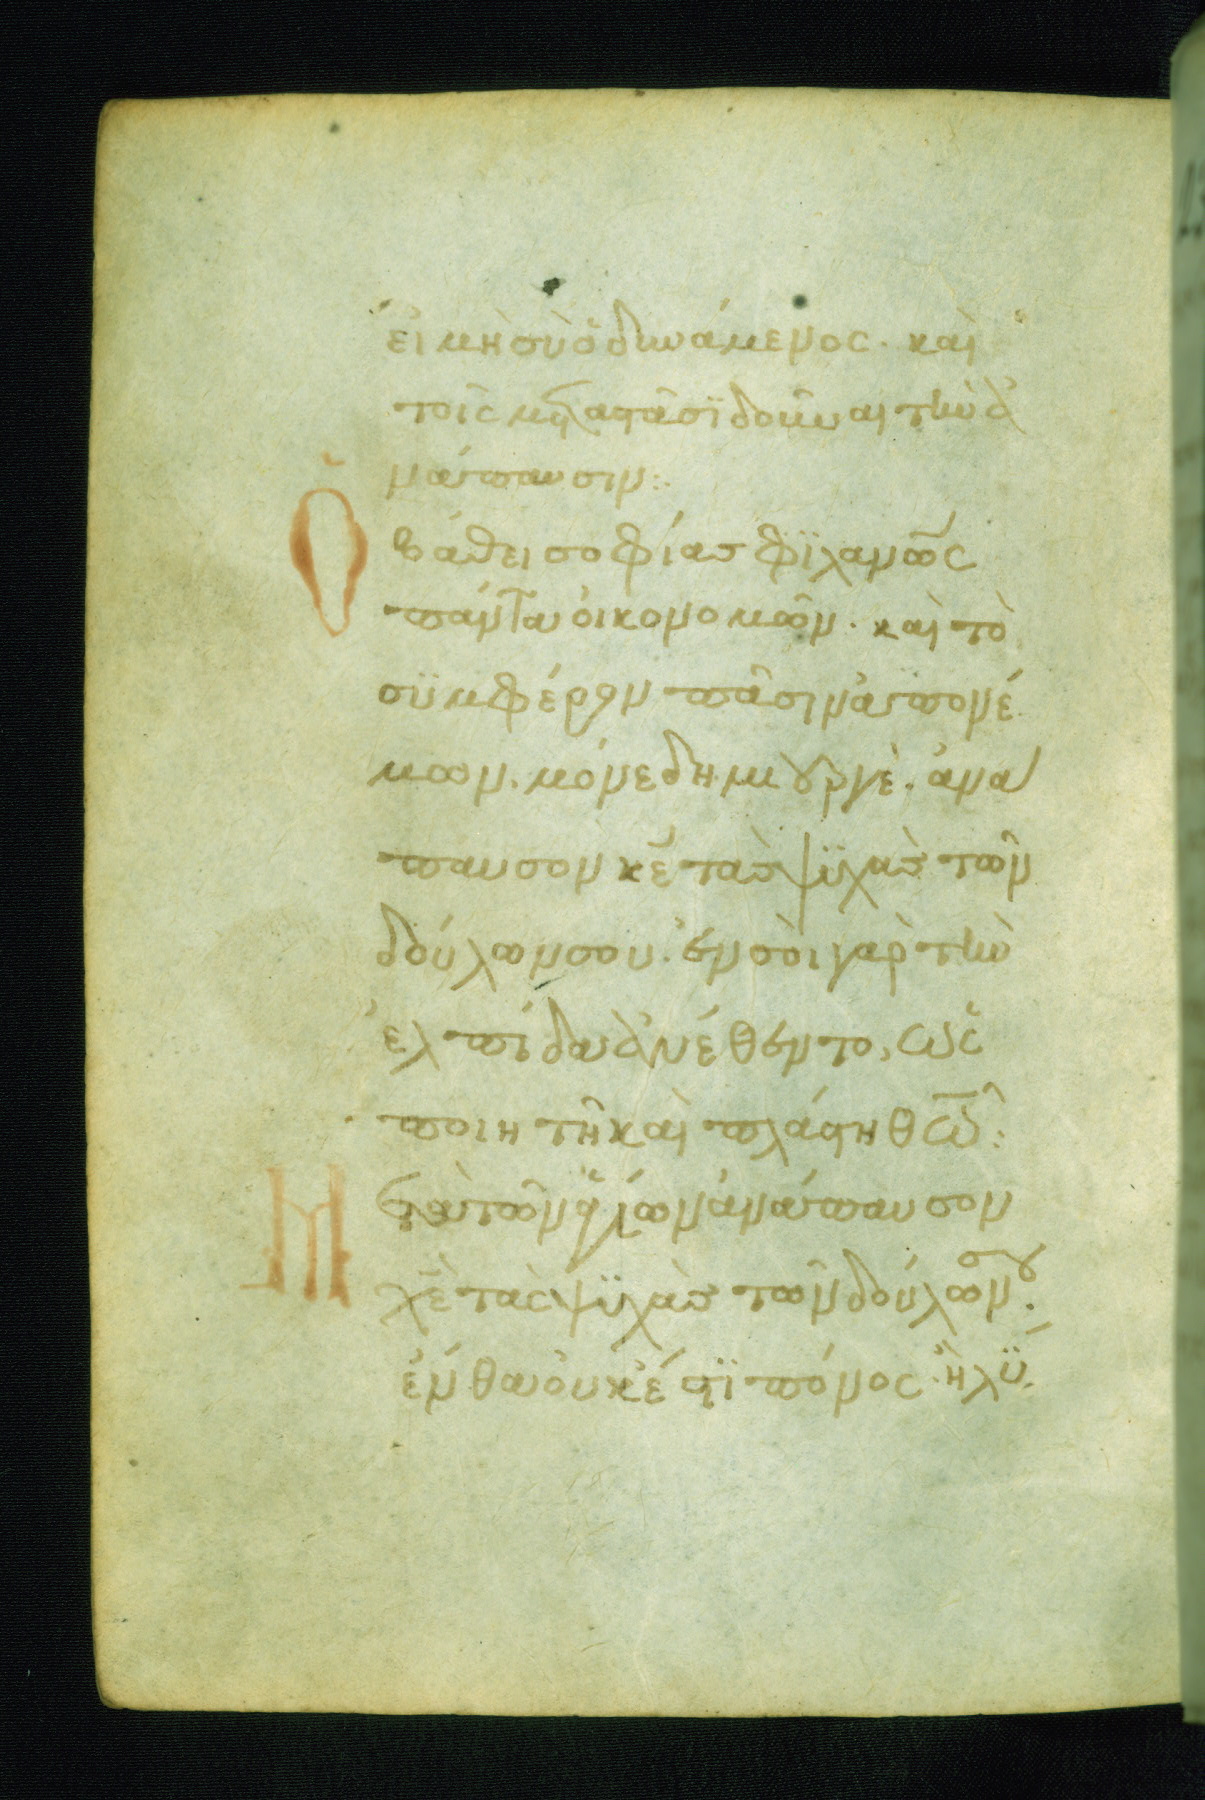 εἰ μὴ σὺ ὁ δυνάμενος · καὶ
τοῖς μεταστᾶσϊ δοῦναι τὴν ἀ
νάπαυσιν :·
Ὁ βάθει σοφίας φϊλαν̅ω̅ς
πάντα οἰκονομῶν · καὶ τὸ
σϋμφέρον πᾶσιν ἀπονέ
μων · μόνε δημιουργὲ · ἀνά
παυσον κ̅ε̅ τὰς ψϋχὰς τῶν
δούλων σου · ἐν σοὶ γὰρ τὴν
ἐλπίδα ἀνέθεντο, τῶ
ποιητῆ καὶ πλάστη θ̅ω̅ :
Μετὰ τῶν ἁγίων ἀνάπαυσον
χ̅ε̅ τὰς ψϋχὰς τῶν δούλων σου ·
ἔνθα οὐκ ἔστϊ πόνος · οὐ λϋ